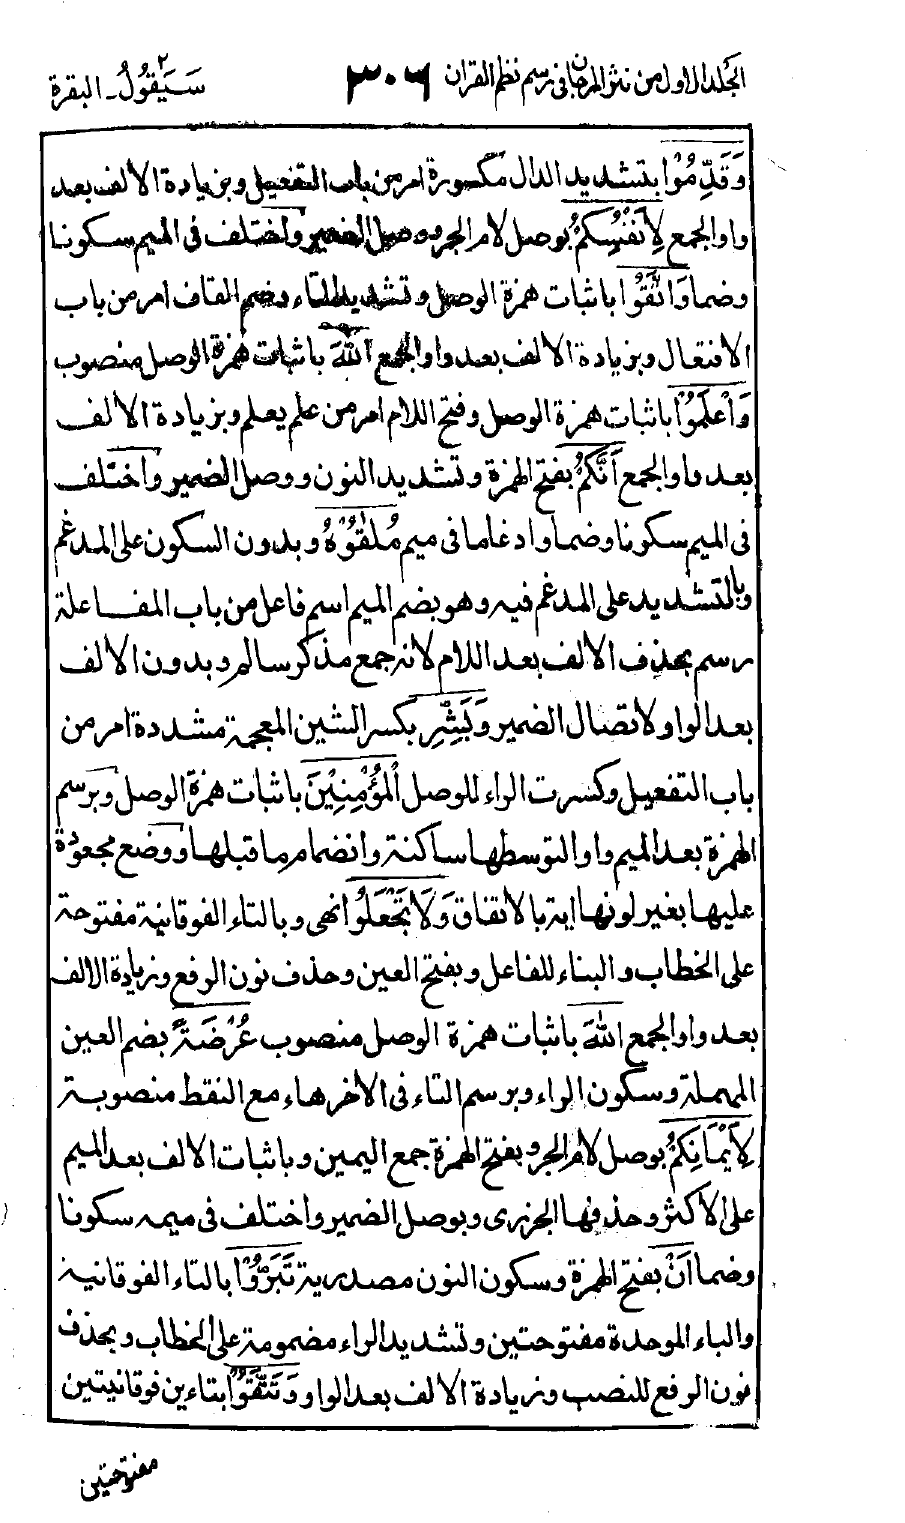 الجلد الاول من نثر المرجان في رسم نظم القران ٣٠٦ سَيَقُولُ ٢ ـ البقرة
وَقَدِّمُوْا بتشديد الدال مكسورة امر من باب التفعيل وبزيادة الالف بعد
واو الجمع لِاَنْفُسِكُمْ بوصل لام الجر ووصل الضمير واختلف فى الميم سكونا
وضما وَاتَّقُوْا باثبات همزة الوصل وتشديد التاء وضم القاف امر من باب
الافتعال وبزيادة الالف بعد واو الجمع اللهَ باثبات همزة الوصل منصوب
وَاعْلَمُوْا باثبات همزة الوصل وفتح اللام امر من علم يعلم وبزيادة الالف
بعد واو الجمع اَنَّكُمْ بفتح الهمزة وتشديد النون ووصل الضمير واختلف
فى الميم سكونا وضما وادغاما فى ميم مُلٰقُوْهُ وبدون السكون على المدغم
وبالتشديد على المدغم فيه وهو بضم الميم اسم فاعل من باب المفاعلة
رسم بحذف الالف بعد اللام لانه جمع مذكر سالم وبدون الالف
بعد الواو لاتصال الضمير وَبَشِّرِ بكسر الشين المعجمة مشددة امر من
باب التفعيل وكسرت الراء للوصل الْمُؤْمِنِيْنَ باثبات همزة الوصل وبرسم
الهمزة بعد الميم واوا لتوسطها ساكنة وانضمام ما قبلها ووضع مجعودة
عليها بغير لونها اية بالاتفاق وَلَا تَجْعَلُوْا نهى وبالتاء الفوقانية مفتوحة
على الخطاب والبناء للفاعل وبفتح العين وحذف نون الرفع وزيادة الالف
بعد واو الجمع اللهَ باثبات همزة الوصل منصوب عُرْضَةً بضم العين
المهملة وسكون الراء وبرسم التاء فى الاخر هاء مع النقط منصوبة
لِاَيْمَانِكُمْ بوصل لام الجر وبفتح الهمزة جمع اليمين وباثبات الالف بعد الميم
على الاكثر وحذفها الجزرى وبوصل الضمير واختلف فى ميمه سكونا
وضما اَنْ بفتح الهمزة وسكون النون مصدرية تَبَرُّوْا بالتاء الفوقانية
والباء الموحدة مفتوحتين وتشديد الراء مضمومة على الخطاب وبحذف
نون الرفع للنصب وزيادة الالف بعد الواو وَتَتَّقُوْا بتاءين فوقانيتين
مفتوحتين